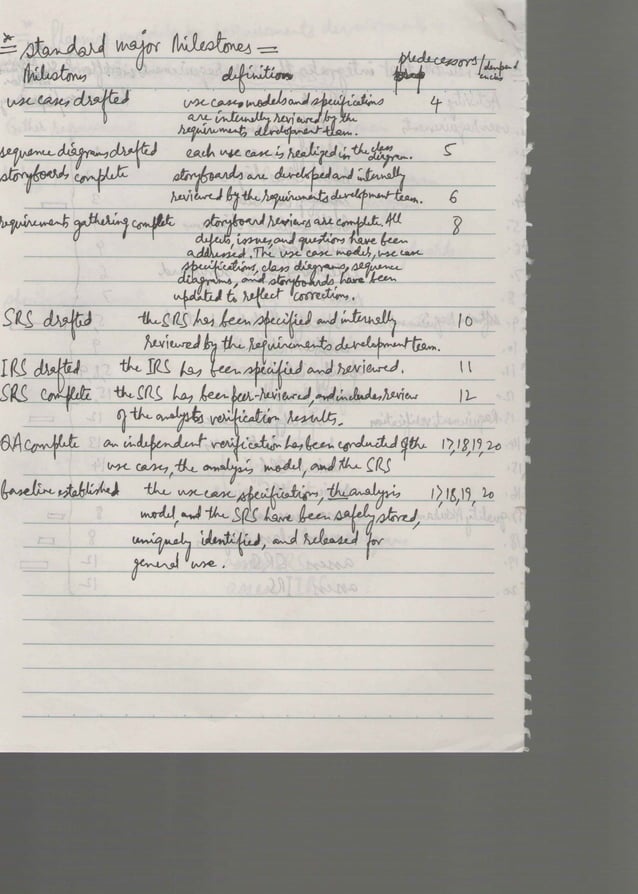 * = standard major Milestones =
Milestones definitions predecessors/depend
encies
use cases drafted use cases models and specifications 4
are internally reviewed by the
requirements development team.
sequence diagrams drafted each use case is realized in the class 5
diagram.
storyboards complete storyboards are developed and internally
reviewed by the requirements development team. 6
requirements gathering complete storyboard reviews are complete. All 8
defects, issues, and questions have been
addressed. The use case model, use case
specifications, class diagrams, sequence
diagrams, and storyboards have been
updated to reflect corrections.
SRS drafted the SRS has been specified and internally 10
reviewed by the requirements development team.
IRS drafted the IRS has been specified and reviewed. 11
SRS complete the SRS has been peer-reviewed, and includes review 12
of the analysts verification results.
QA complete an independent verification has been conducted of the 17,18,19,20
use cases, the analysis model, and the SRS
baseline established the use case specifications, the analysis 17,18,19, 20
model, and the SRS have been safely stored,
uniquely identified, and released for
general use.